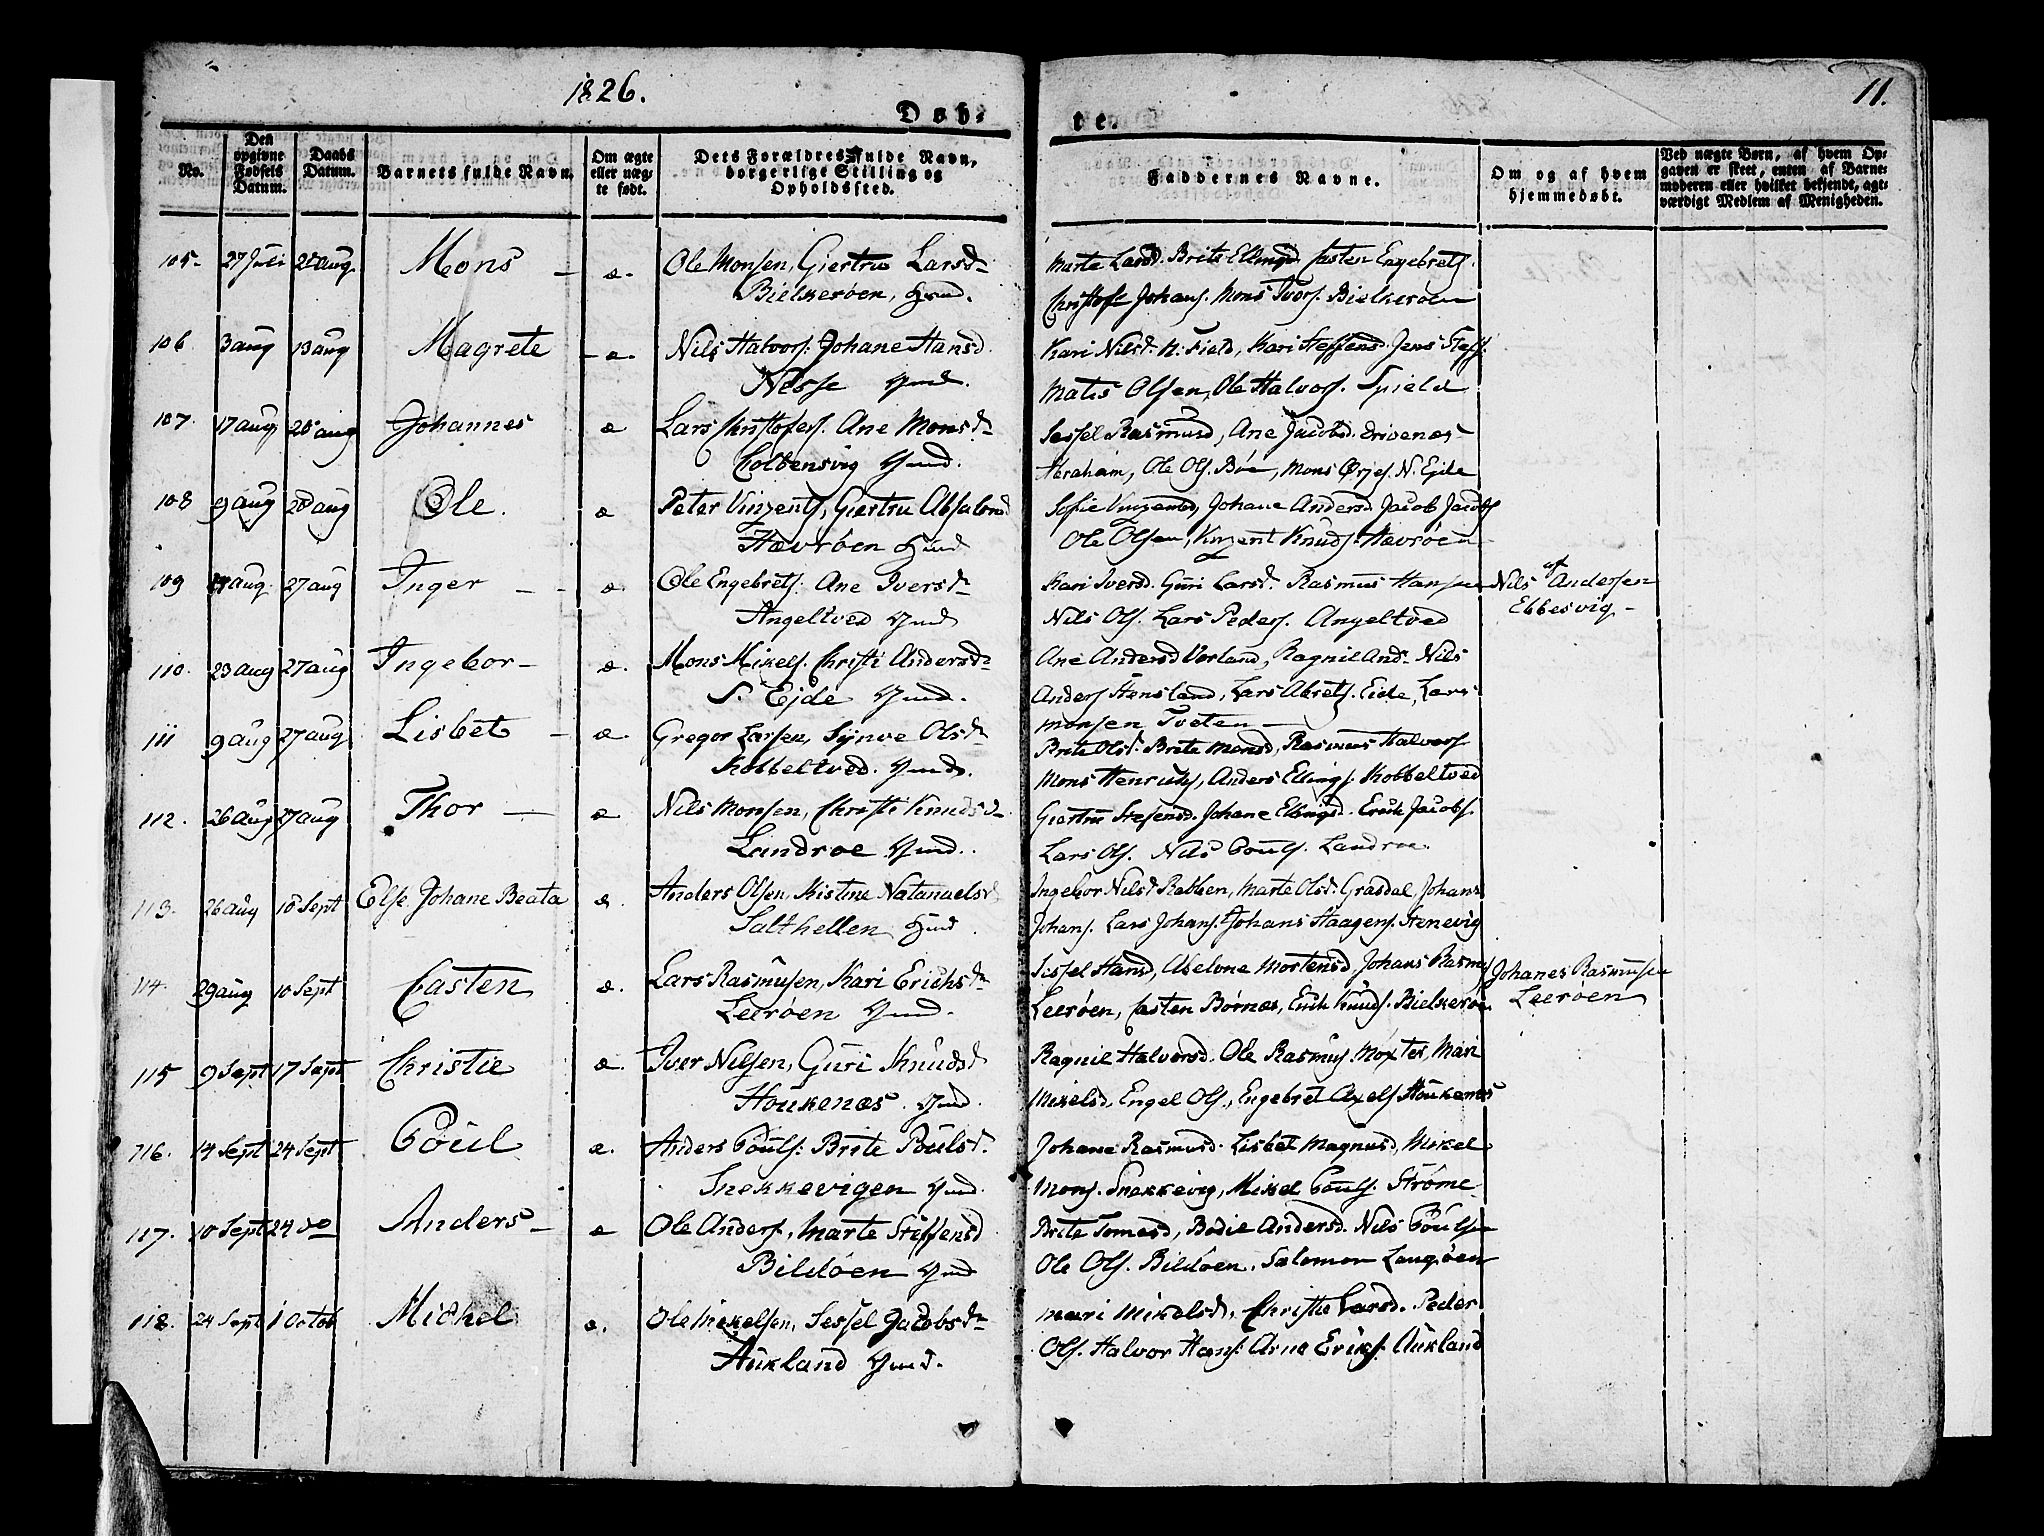 1826.
11.
Døb-
te.
No.
Den
opgivne
Fødsels
Datum.
Daabs
Datum.
Barnets fulde Navn.
Om ægte
eller uæg-
te født.
Dets Forældres fulde Navn,
borgerlige Stilling og
Opholdssted.
Faddernes Navne.
Om og af hvem
hjemmedøbt.
Ved uægte Børn, af hvem Op-
gaven er skeet, enten af Barne-
moderen eller hvilket bekjendt, agt-
værdigt Medlem af Menigheden.
105- 27 Juli aug Mons æ. Ole Monsen, Giertru Larsd. Marte Larsd. Brite Ellingsd. Casten Engebrets.
Bielkerøen, Huusmd. Christof Johans. Mons Ivers. Bielkerøen
106 3 aug 13 aug Magrete æ. Nils Halvors: Johane Hansd. Kari Nilsd. N. Field, Kari Steffensd. Jens Steff:
Nesse Gmd. Matis Olsen, Ole Halvors. Spield
107. 17 aug 20 aug Johannes æ Lars Christofers. Ane Monsd. Sessel Rasmusd, Ane Jacobsd. Drivenæs
Coltensvig Gmd. Abraham, Ole Ols. Böe, Mons Ørjes. N. Ejde
108 9 aug 20 aug Ole. æ Peter Vinzents, Giertru Absalonsd Sofie Vinzentsd, Johane Andersd. Jacob Jacobs
Hævröen Huusmd Ole Olsen, Vinzent Knuds. Hævröen
109 aug. 27 aug Inger æ. Ole Engebrets: Ane Iversd. Kari Iversd. Guri Larsd. Rasmus Hansen Nils af Andersen
Angeltved Gmd Nils Ols. Lars Peders. Angeltved Ebbesvig.
110. 23 aug 27 aug Ingebor æ. Mons Mikels. Christi Andersd. Ane Andersd Vorland, Ragnil And. Nils
S. Ejde Gmd. Anders Stensland, Lars Abrets. Eide, Lars
Monsen Tveten
111 9 aug 27 aug Lisbet æ Gregor Larsen, Synve Olsd. Brite Olsd. Brete Monsd, Rasmus Halvors
Kobbeltved. Gmd. Mons Henriks, Anders Ellings. Kobbeltved
112. 26 aug 27 aug Thor æ Nils Monsen, Christi Knudsd. Giertru Stefensd. Johane Ellingsd. Erik Jacobs.
Landroe Gmd. Lars Ols. Nils Pouls. Landroe
113. 26 aug 10 Sept Else Johane Beata æ. Anders Olsen, Kistine Natanaelsd Ingebor Nilsd. Rabben, Marte Olsd. Grasdal, Johans
Salthellen Huusmd Johans. Lars Johans. Johans Haagens. Stenevig
114. 29 aug 10 Sept Casten æ. Lars Rasmusen, Kari Erichsd. Sissel Hansd, Abelone Mortensd, Johans Rasmus Johanes Rasmusen
Leerøen Gmd. Leerøen, Casten Börnæs, Erik Knuds. Bielkerøe Leerøen
115 9 Sept 17 Sept Christie æ. Iver Nilsen, Guri Knudsd Ragnil Halvorsd. Ole Rasmus, Mari
Houkenæs. Gmd. Mikelsd, Engel Ols., Engebret Axels Houkenæs
116. 14 Sept 24 Sept Poul æ. Anders Pouls: Brite Poulsd. Johane Rasmusd. Lisbet Magnusd, Mikel
Snekkevigen Gmd. Mons. Snekkevig, Mikel Pouls. Strøme
117. 10 Sept 24 do Anders æ Ole Anders., Marte Steffensd Brite Tomesd, Bodie Andersd. Nils Poulsen
Bildøen Gmd Ole Ols. Bildøen, Salomon Langøen
118. 24 Sept 1 Octob Michel æ. Ole Mikelsen, Sessel Jacobsd. Mari Mikelsd. Christie Larsd. Peder
Aukland Gmd. Ols. Halvor Hans: Arne Eriks. Aukland